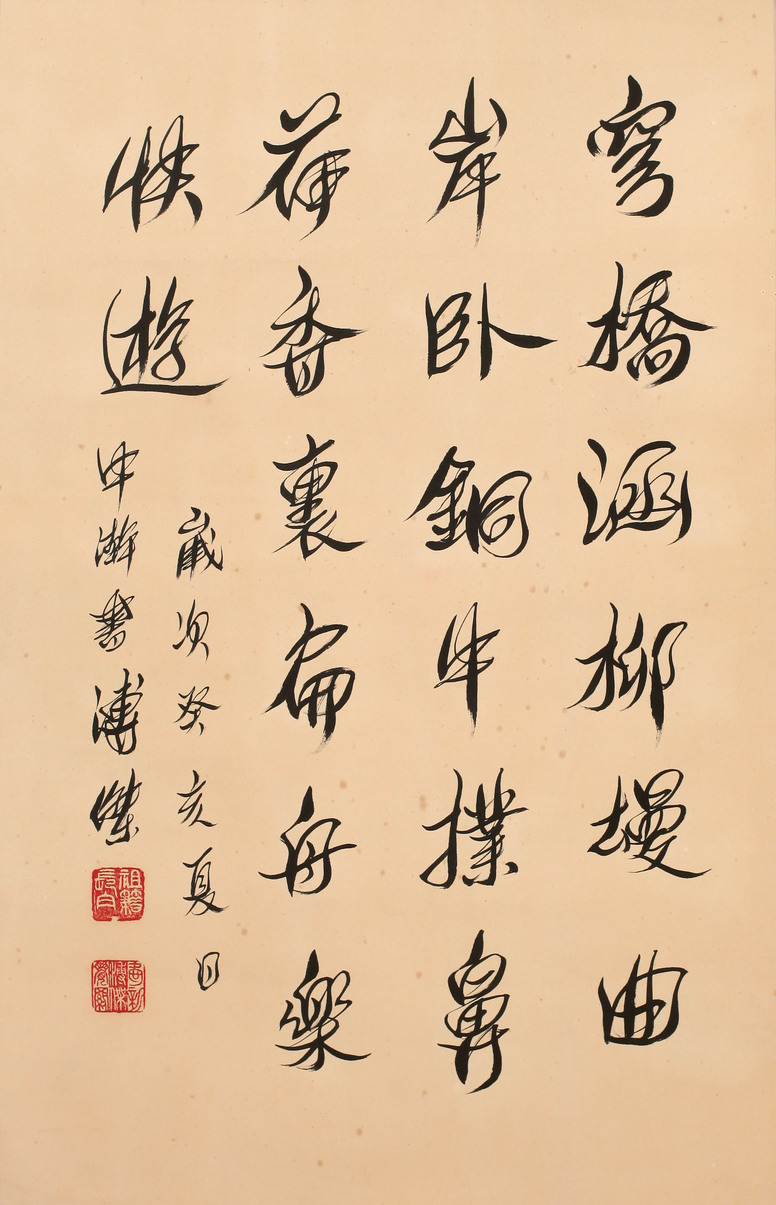 穹橋涵柳墁曲
岸臥銅牛撲鼻
荷香裏扁舟樂
快遊
歲次癸亥夏日
中澣書溥傑
祖籍長白
愛新覺羅溥傑